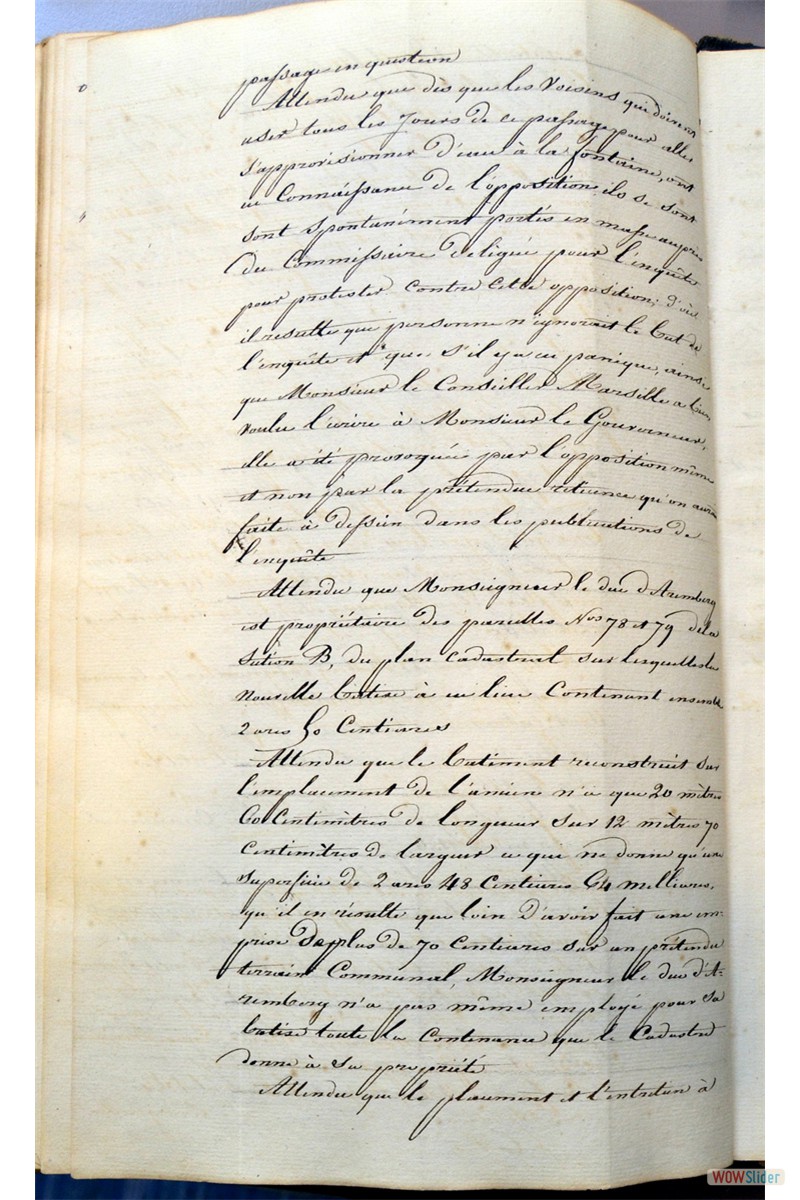 passage en question
Attendu que dès que les Voisins qui doivent
user tous les Jours de ce passage pour aller
s'approvisionner d'eau à la fontaine, ont
eu Connaissance de l'opposition, ils se sont
sont spontanément portés en masse auprès
du Commissaire délégué pour l'enquête
pour protester contre cette opposition; d'où
il resulte que personne n'ignorait le but de
l'enquête et que s'il y a eu panique, ainsi
que Monsieur le Conseiller Marsille a bien
voulu l'écrire à Monsieur le Gouverneur,
elle a été provoquée par l'opposition même
et non par la prétendue réticence qu'on aurait
faite à dessein dans les publications de
l'enquête
Attendu que Monseigneur le duc d'Aremberg
est propriétaire des parcelles Nos 78 et 79 de la
Section B, du plan cadastral sur lesquelles la
nouvelle batise à eu lieu Contenant ensemble
2 ares 50 Centiares
Attendu que le batiment reconstruit sur
l'emplacement de l'ancien n'a que 20 mètres
60 Centimètres de longueur sur 12 mètres 70
Centimètres de largeur ce qui ne donne qu'une
superficie de 2 ares 48 Centiares 64 milliares,
qu'il en résulte que loin d'avoir fait une em-
prise de plus de 70 Centiares sur un prétendu
terrain Communal, Monseigneur le duc d'A-
remberg n'a pas même employé pour sa
batise toute la Contenance que le Cadastre
donne à sa propriété
Attendu que le placement et l'entretien à
WOWSlider